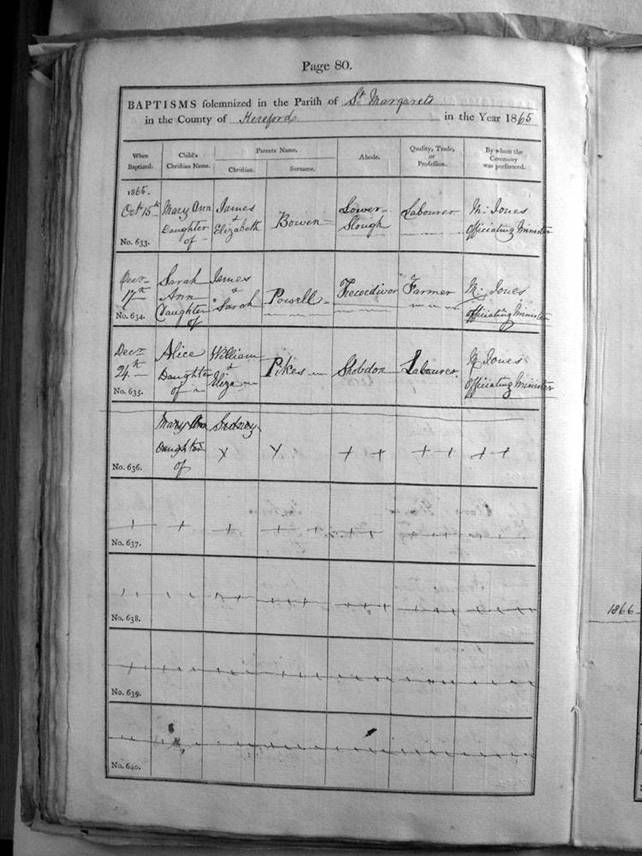 Page 80.
BAPTISMS solemnized in the Parish of St Margarets
in the County of Hereford in the Year 1865
When Baptized. Child's Christian Name. Parents Name. Christian. Surname. Abode. Quality, Trade, or Profession. By whom the Ceremony was performed.
1865.
Oct 15th Mary Ann James Lower Labourer M. Jones
Daughter & Elizabeth Bowen Slough Officiating Minister
of
No. 633.
Decr Sarah James
17th Ann & Powell Farmer Jones
Daughter Sarah Officiating Minister
No. 634. of
Decr Alice William
24th Daughter & Pikes Shobdon Labourer. Jones
of Eliza Officiating Minister
No. 635.
Mary Ann Sidney
Daughter
No. 636. of
No. 637.
No. 638.
No. 639.
No. 640.
1866